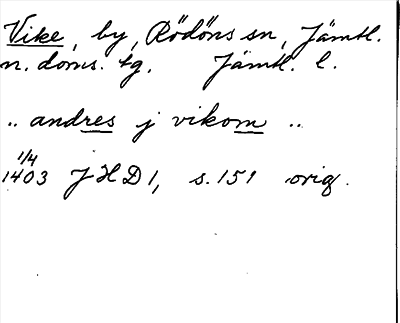 Vike, by, Rödöns sn, Jämtl.
n. doms. tg. Jämtl. l.
.. andres j vikom ..
1/4
1403 JHD 1, s. 151 orig.